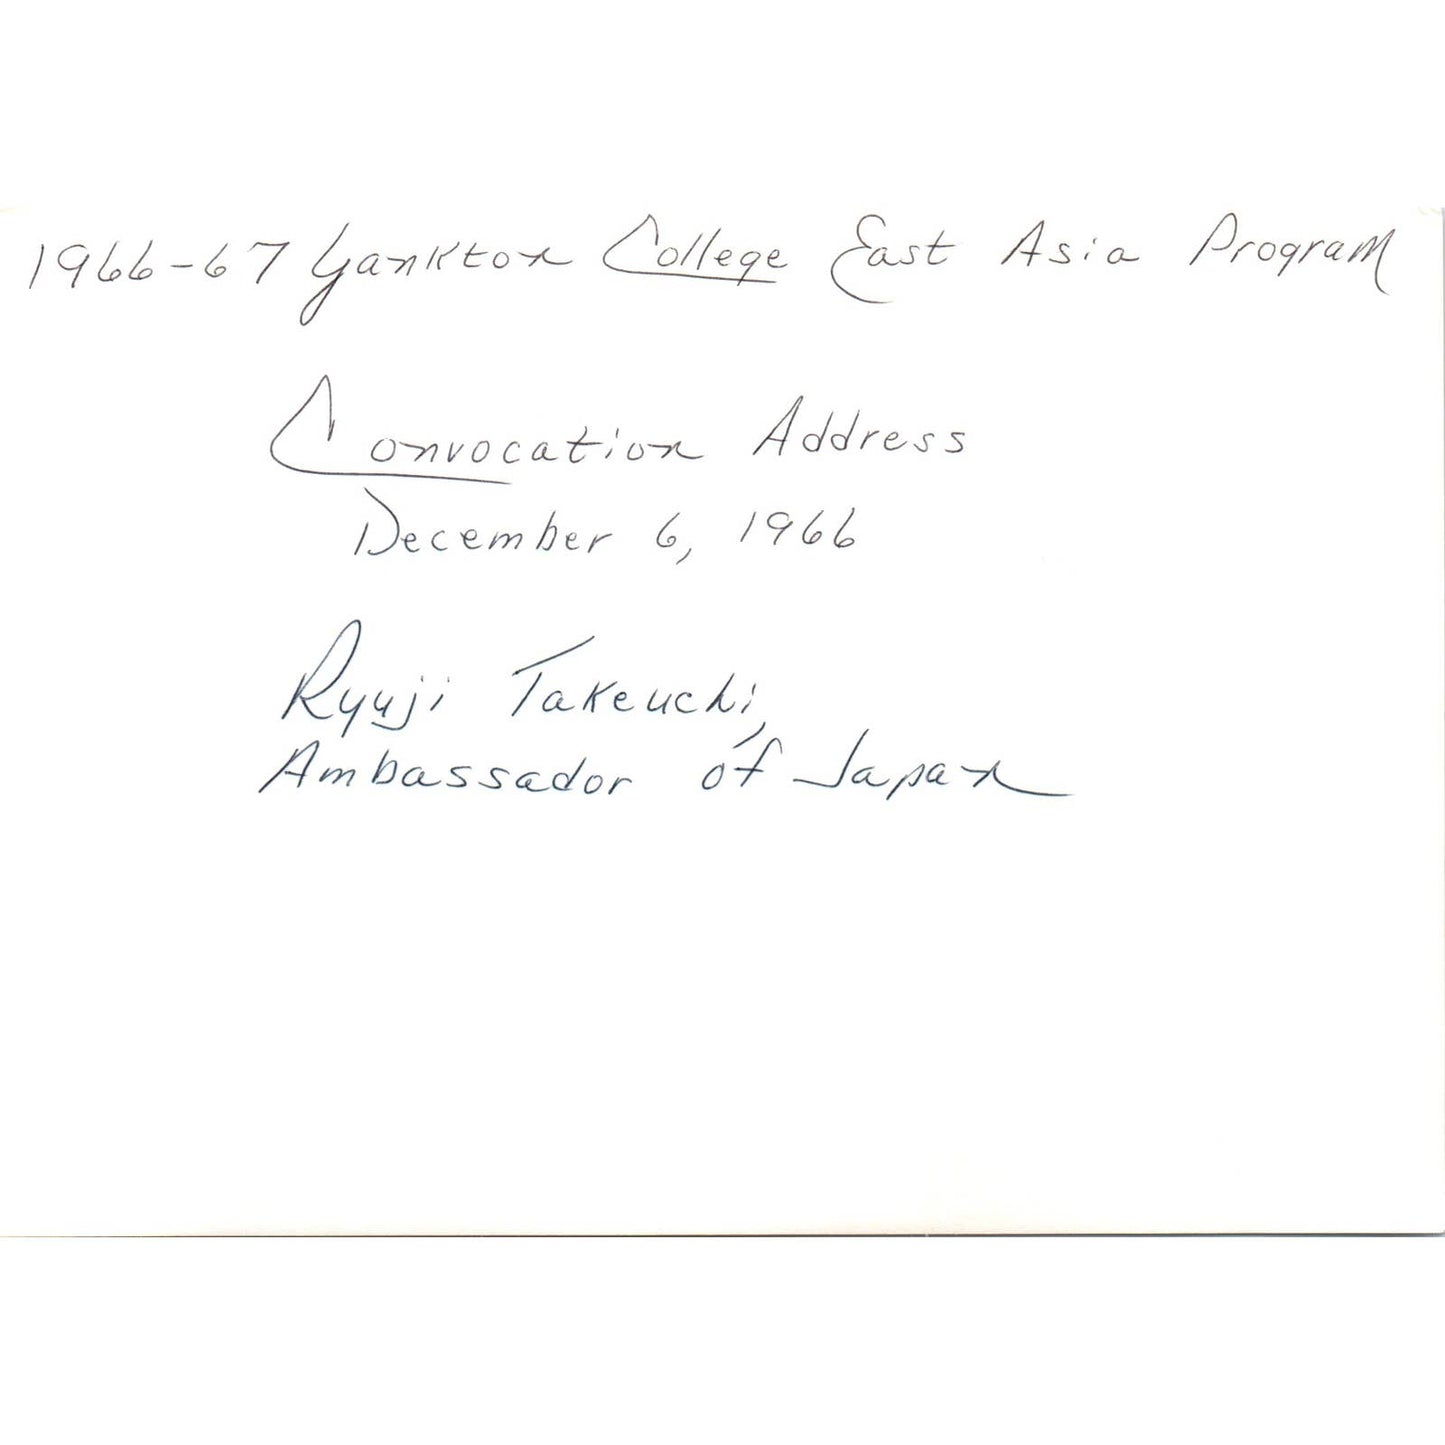 1966-67 Yankton College East Asia Program
Convocation Address
December 6, 1966
Ryuji Takeuchi,
Ambassador of Japan